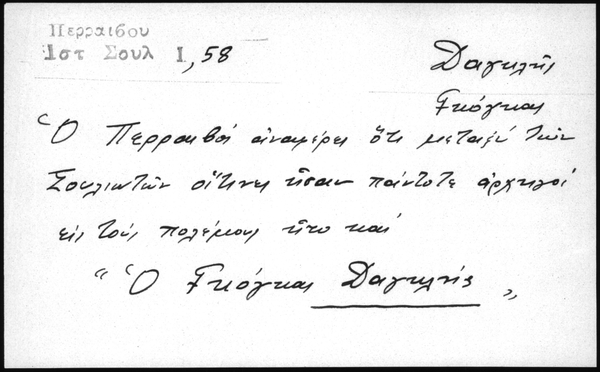 Περραιβου
Ιστ Σουλ Ι, 58
Δαγκλῆς
Γκόγκας
Ὁ Περραιβός ἀναφέρει ὅτι μεταξύ τῶν
Σουλιωτῶν οἵτινες ἦσαν πάντοτε ἀρχηγοί
εἰς τούς πολέμους ἦτο καί
"Ὁ Γκόγκας Δαγκλῆς"